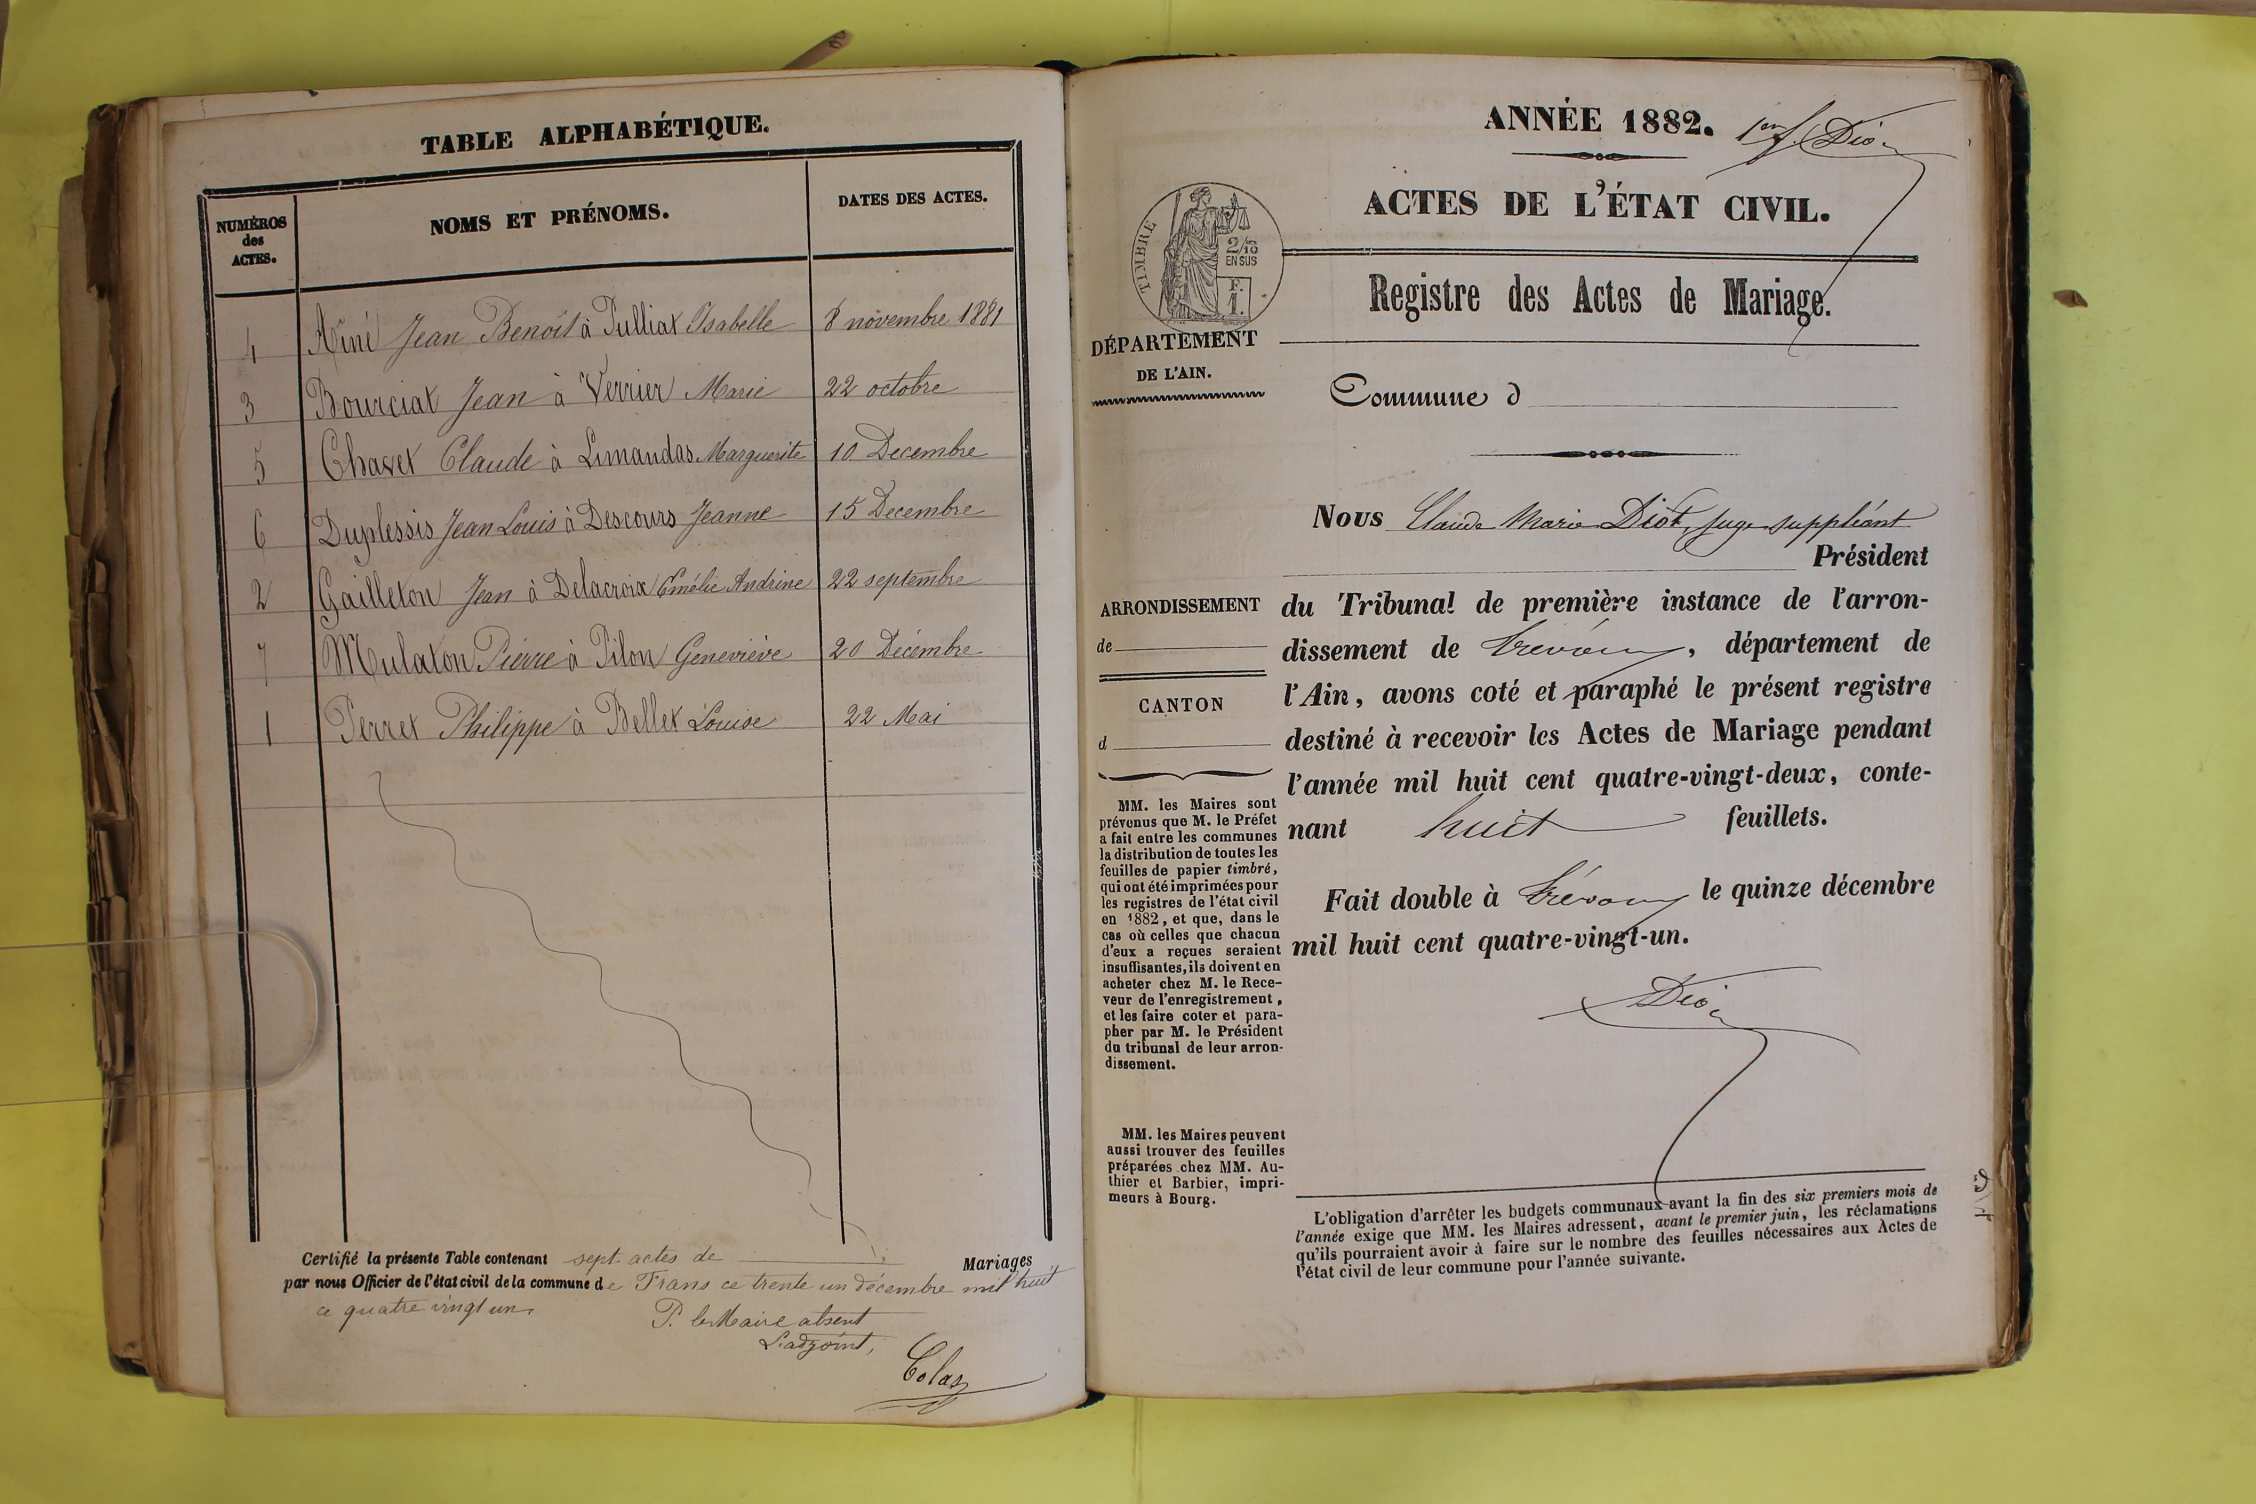 TABLE ALPHABÉTIQUE.
NUMÉROS des ACTES.
NOMS ET PRÉNOMS.
DATES DES ACTES.
4 Aîné Jean Benoît à Pulliat Isabelle 8 novembre 1881
3 Bourciat Jean à Verrier Marie 22 octobre
5 Chavet Claude à Limandas Marguerite 10 Decembre
6 Duplessis Jean Louis à Descours Jeanne 15 Decembre
2 Gailleton Jean à Delacroix Emélie Andrine 22 septembre
7 Mulaton Pierre à Pilon Geneviève 20 Décembre
1 Perret Philippe à Bellet Louise 22 Mai
Certifié la présente Table contenant sept actes de Mariages
par nous Officier de l'état civil de la commune de Trans ce trente un décembre mil huit
ce quatre vingt un.
P. le Maire absent
L'adjoint,
Colas
ANNÉE 1882.
1er f. Diot
ACTES DE L'ÉTAT CIVIL.
TIMBRE
2/10
EN SUS
F.
1.
Registre des Actes de Mariage.
DÉPARTEMENT
DE L'AIN.
Commune d
Nous Claude Marie Diot, juge suppléant
Président
ARRONDISSEMENT
de
CANTON
d
du Tribunal de première instance de l'arron-
dissement de Trévoux, département de
l'Ain, avons coté et paraphé le présent registre
destiné à recevoir les Actes de Mariage pendant
l'année mil huit cent quatre-vingt-deux, conte-
nant huit feuillets.
Fait double à Trévoux le quinze décembre
mil huit cent quatre-vingt-un.
Diot
MM. les Maires sont
prévenus que M. le Préfet
a fait entre les communes
la distribution de toutes les
feuilles de papier timbré,
qui ont été imprimées pour
les registres de l'état civil
en 1882, et que, dans le
cas où celles que chacun
d'eux a reçues seraient
insuffisantes, ils doivent en
acheter chez M. le Rece-
veur de l'enregistrement,
et les faire coter et para-
pher par M. le Président
du tribunal de leur arron-
dissement.
MM. les Maires peuvent
aussi trouver des feuilles
préparées chez MM. Au-
thier et Barbier, impri-
meurs à Bourg.
L'obligation d'arrêter les budgets communaux avant la fin des six premiers mois de
l'année exige que MM. les Maires adressent, avant le premier juin, les réclamations
qu'ils pourraient avoir à faire sur le nombre des feuilles nécessaires aux Actes de
l'état civil de leur commune pour l'année suivante.